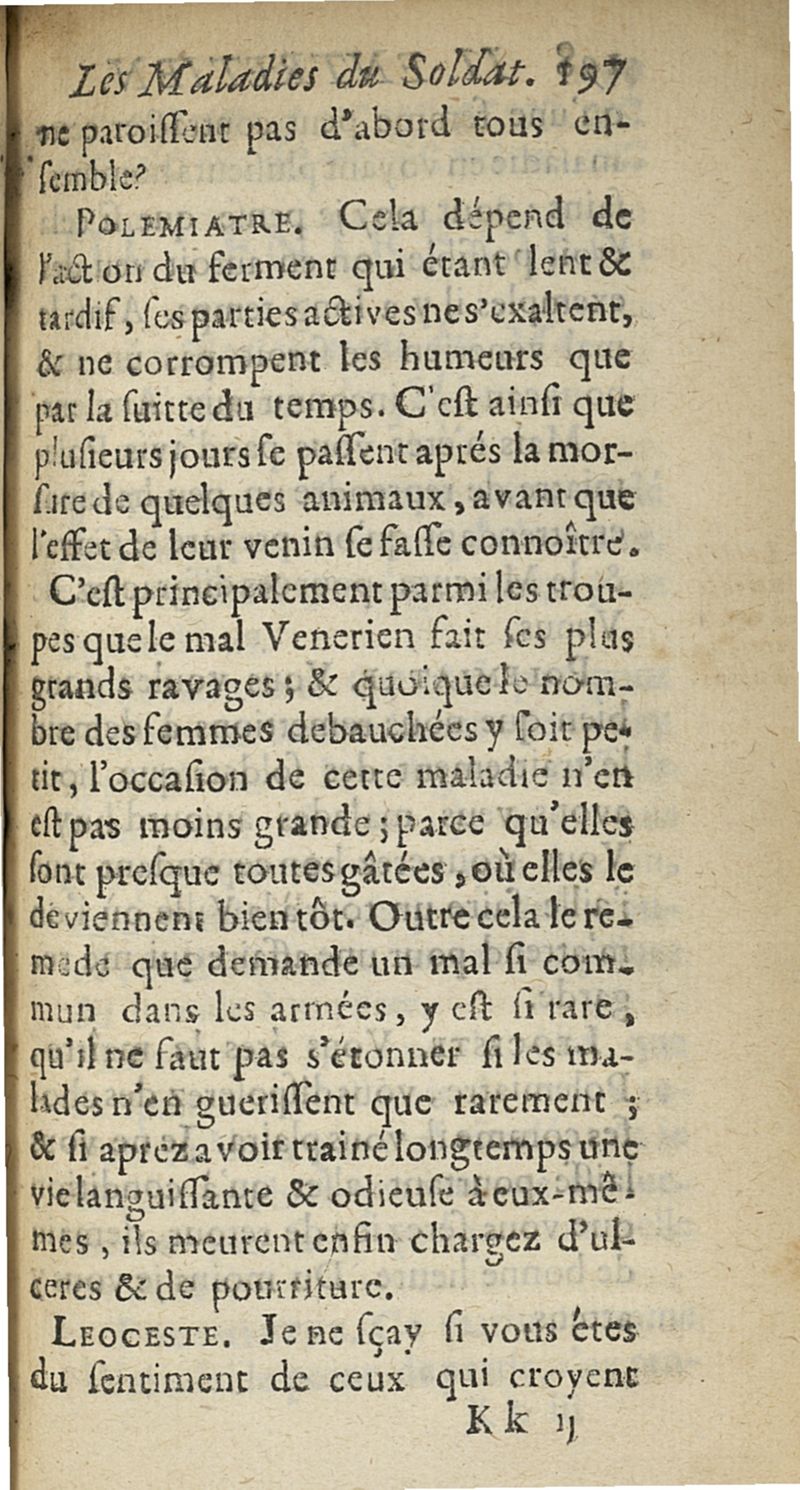 Les Maladies du Soldat. 197
ne paroiſſent pas d'abord tous en-
ſemble?
POLEMIATRE. Cela dépend de
l'action du ferment qui étant lent &
tardif, ſes parties actives ne s'exaltent,
& ne corrompent les humeurs que
par la ſuitte du temps. C'eſt ainſi que
pluſieurs jours ſe paſſent aprés la mor-
ſure de quelques animaux, avant que
l'effet de leur venin ſe faſſe connoître.
C'eſt principalement parmi les trou-
pes que le mal Venerien fait ſes plus
grands ravages; & quoique le nom-
bre des femmes debauchées y ſoit pe-
tit, l'occaſion de cette maladie n'en
eſt pas moins grande; parce qu'elles
ſont preſque toutes gâtées, où elles le
deviennent bien tôt. Outre cela le re-
mede que demande un mal ſi com-
mun dans les armées, y eſt ſi rare,
qu'il ne faut pas s'étonner ſi les ma-
lades n'en gueriſſent que rarement;
& ſi aprez avoir trainé longtemps une
vie languiſſante & odieuſe à eux-mê-
mes, ils meurent enfin chargez d'ul-
ceres & de pourriture.
LEOCESTE. Je ne ſçay ſi vous êtes
du ſentiment de ceux qui croyent
K k ij